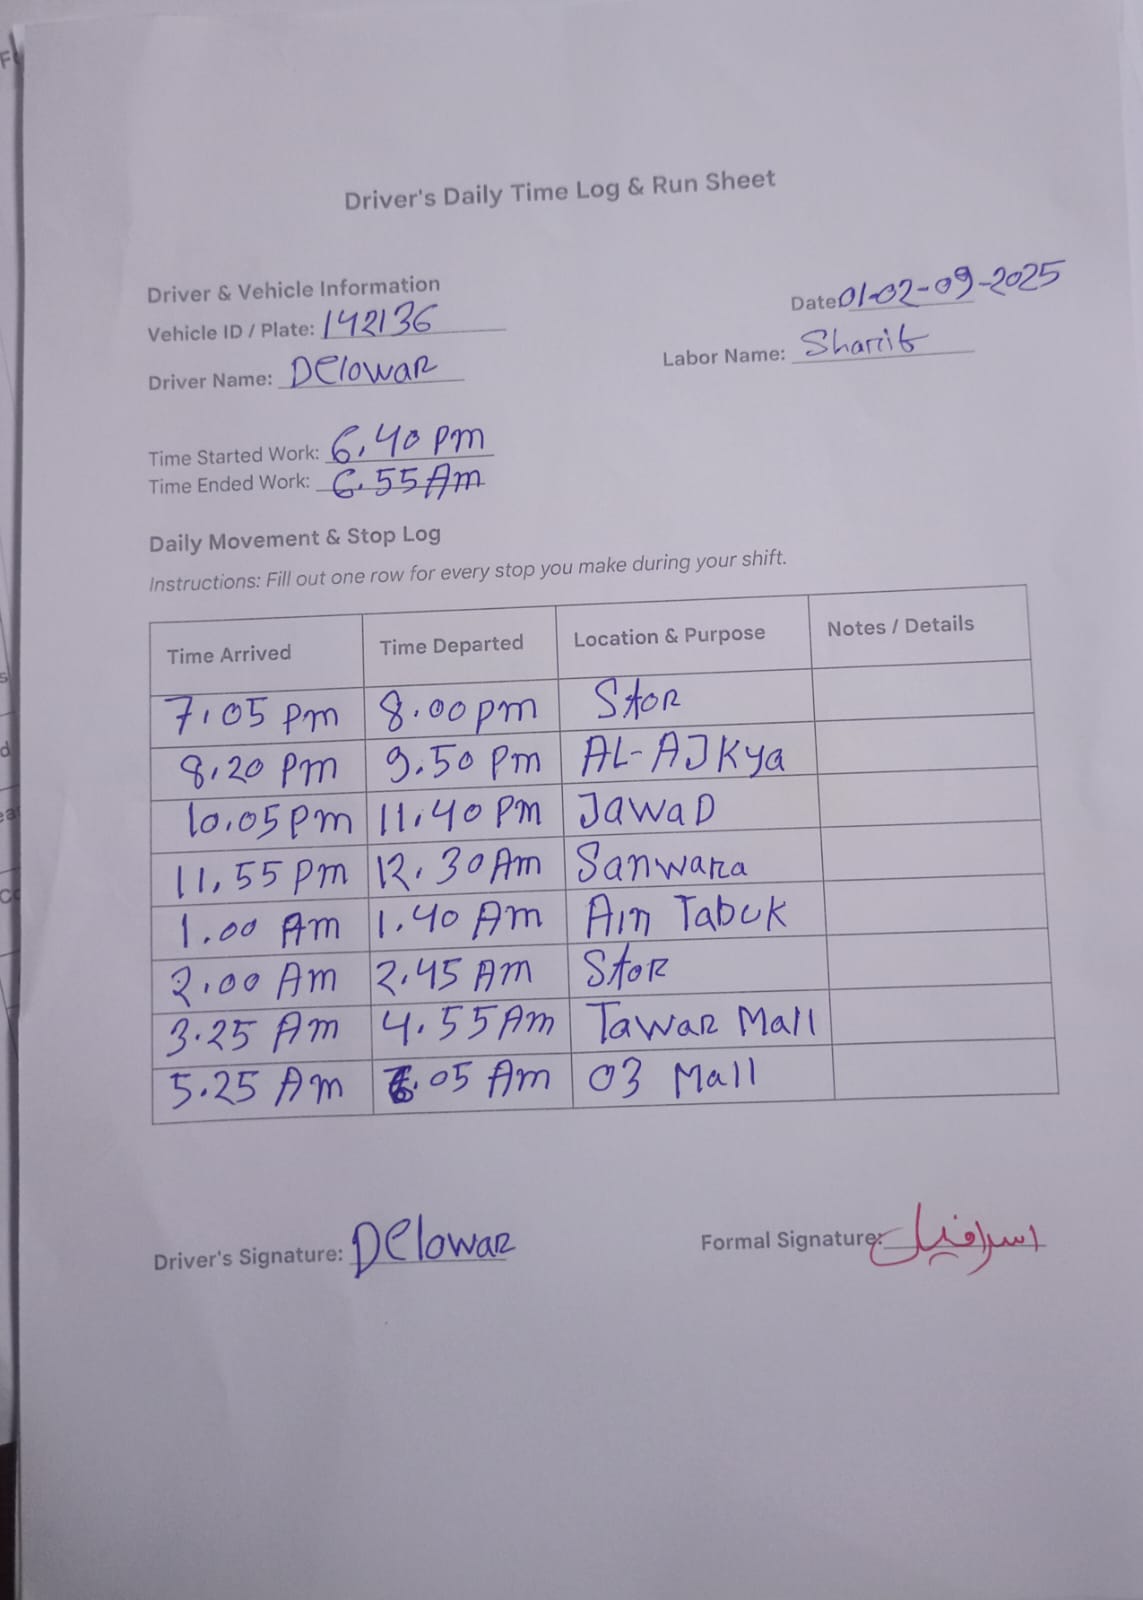 Driver's Daily Time Log & Run Sheet
Driver & Vehicle Information
Vehicle ID / Plate: 142136
Date: 01-02-09-2025
Driver Name: Delowar
Labor Name: Sharif
Time Started Work: 6.40 pm
Time Ended Work: 6.55 Am
Daily Movement & Stop Log
Instructions: Fill out one row for every stop you make during your shift.
Time Arrived Time Departed Location & Purpose Notes / Details
7.05 pm 8.00 pm Stor
8.20 pm 9.50 pm AL-AJKya
10.05 pm 11.40 pm Jawad
11.55 pm 12.30 Am Sanwara
1.00 Am 1.40 Am Ain Tabuk
2.00 Am 2.45 Am Stor
3.25 Am 4.55 Am Tawar Mall
5.25 Am 6.05 Am 03 Mall
Driver's Signature: Delowar
Formal Signature: اسرافيل